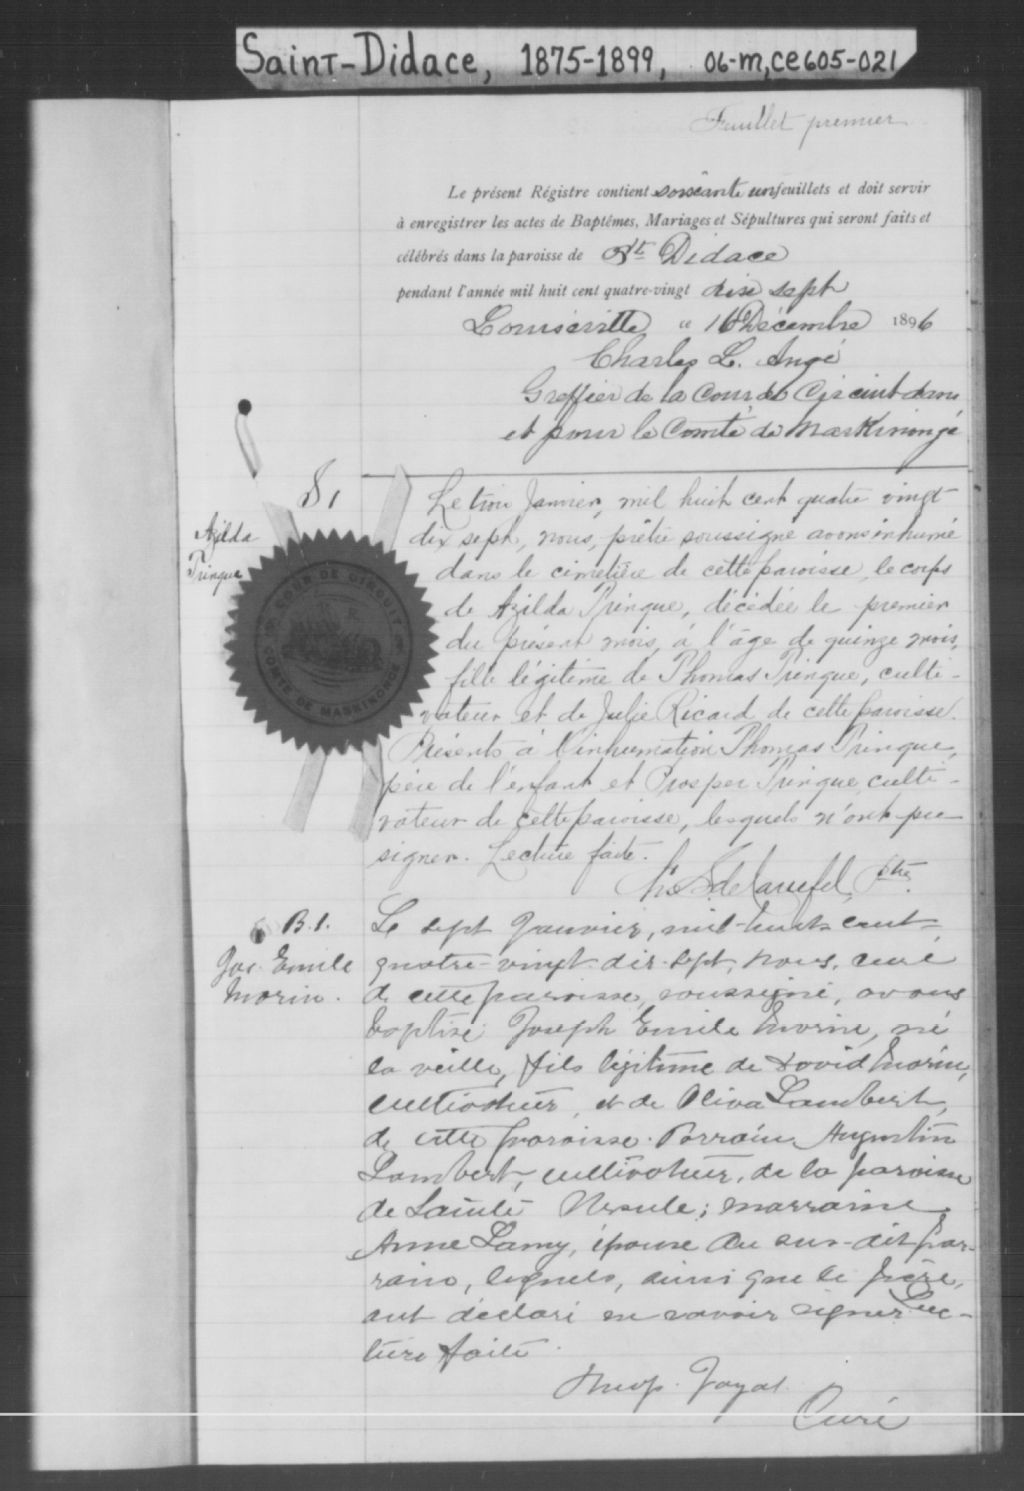 Saint-Didace, 1875-1899, 06-M,CE605-021
Feuillet premier
Le présent Régistre contient soixante un feuillets et doit servir
à enregistrer les actes de Baptêmes, Mariages et Sépultures qui seront faits et
célébrés dans la paroisse de St Didace
pendant l'année mil huit cent quatre-vingt dix sept
Louiseville 16 Décembre 1896
Charles L. Angé
Greffier de la Cour de Circuit dans
et pour le Comté de Maskinongé
S 1
Azilda
Pringue
COUR DE CIRCUIT
COMTÉ DE MASKINONGÉ
Le trois Janvier, mil huit cent quatre vingt
dix sept, nous, prêtre soussigné avons inhumé
dans le cimetière de cette paroisse, le corps
de Azilda Pringue, décédée le premier
du présent mois, à l'âge de quinze mois,
fille légitime de Thomas Pringue, culti-
vateur et de Julie Ricard de cette paroisse.
Présents à l'inhumation Thomas Pringue,
père de l'enfant et Prosper Pringue, culti-
vateur de cette paroisse, lesquels n'ont pu
signer. Lecture faite.
Ptre
B. 1.
Jos. Emile
Morin.
Le sept Janvier, mil-huit-cent-
quatre-vingt-dix-sept, nous, curé
de cette paroisse, soussigné, avons
baptisé Joseph Emile Morin, né
la veille, fils légitime de David Morin,
cultivateur, et de Oliva Lambert,
de cette paroisse. Parrain, Augustin
Lambert, cultivateur, de la paroisse
de Sainte Ursule; marraine
Anne Lamy, épouse du sus-dit par-
rain, lesquels, ainsi que le père,
ont déclaré ne savoir signer. Lec-
ture faite.
Curé